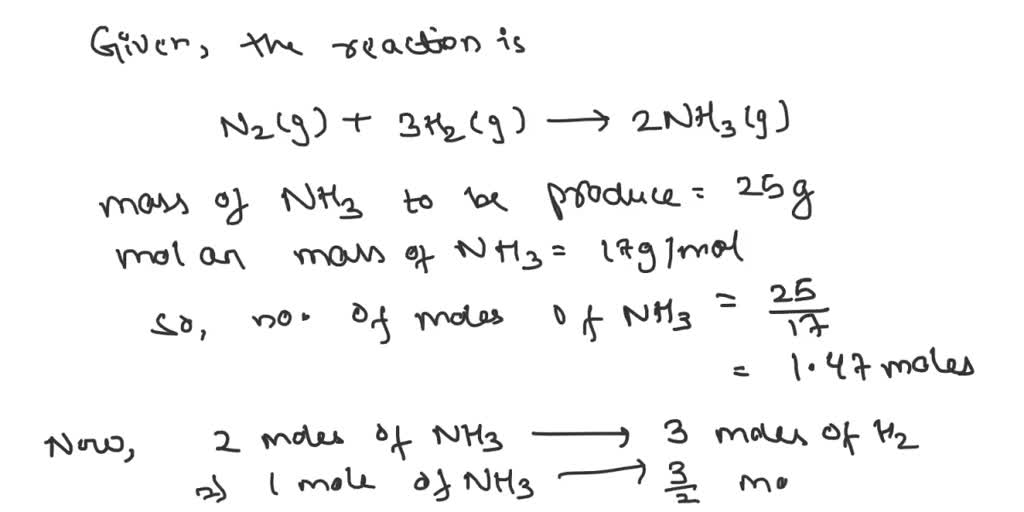 Given, the reaction is
N2(g) + 3H2(g) → 2NH3(g)
mass of NH3 to be produce = 25g
molar mass of NH3 = 17g/mol
so, no. of moles of NH3 = 25/17
= 1.47 moles
Now, 2 moles of NH3 → 3 moles of H2
⇒ 1 mole of NH3 → 3/2 mo